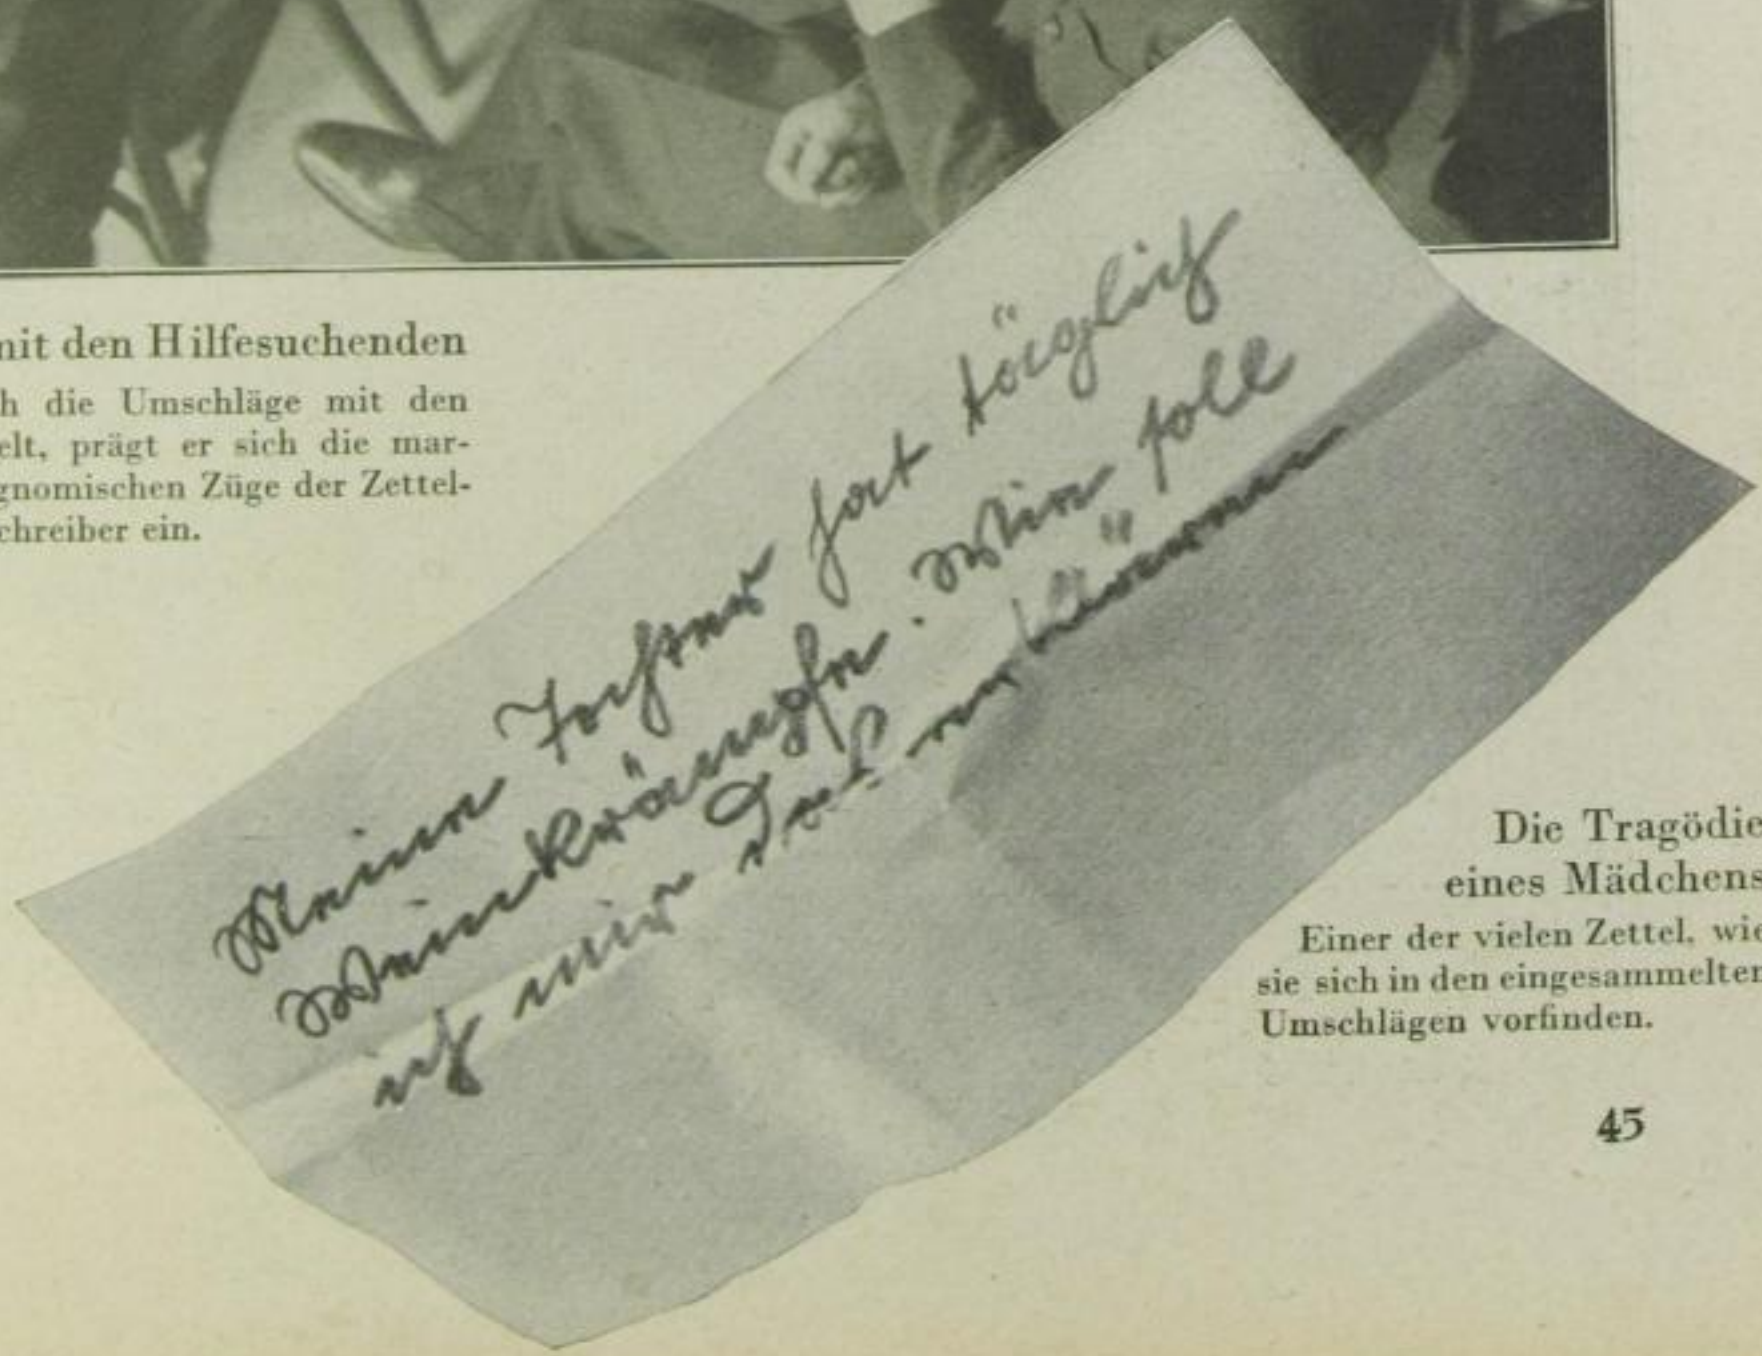 mit den Hilfesuchenden
ch die Umschläge mit den
elt, prägt er sich die mar-
gnomischen Züge der Zettel-
chreiber ein.
Meine Tochter hat täglich
Weinkrämpfe. Wie soll
ich mir das erklären
Die Tragödie
eines Mädchens
Einer der vielen Zettel, wie
sie sich in den eingesammelten
Umschlägen vorfinden.
45